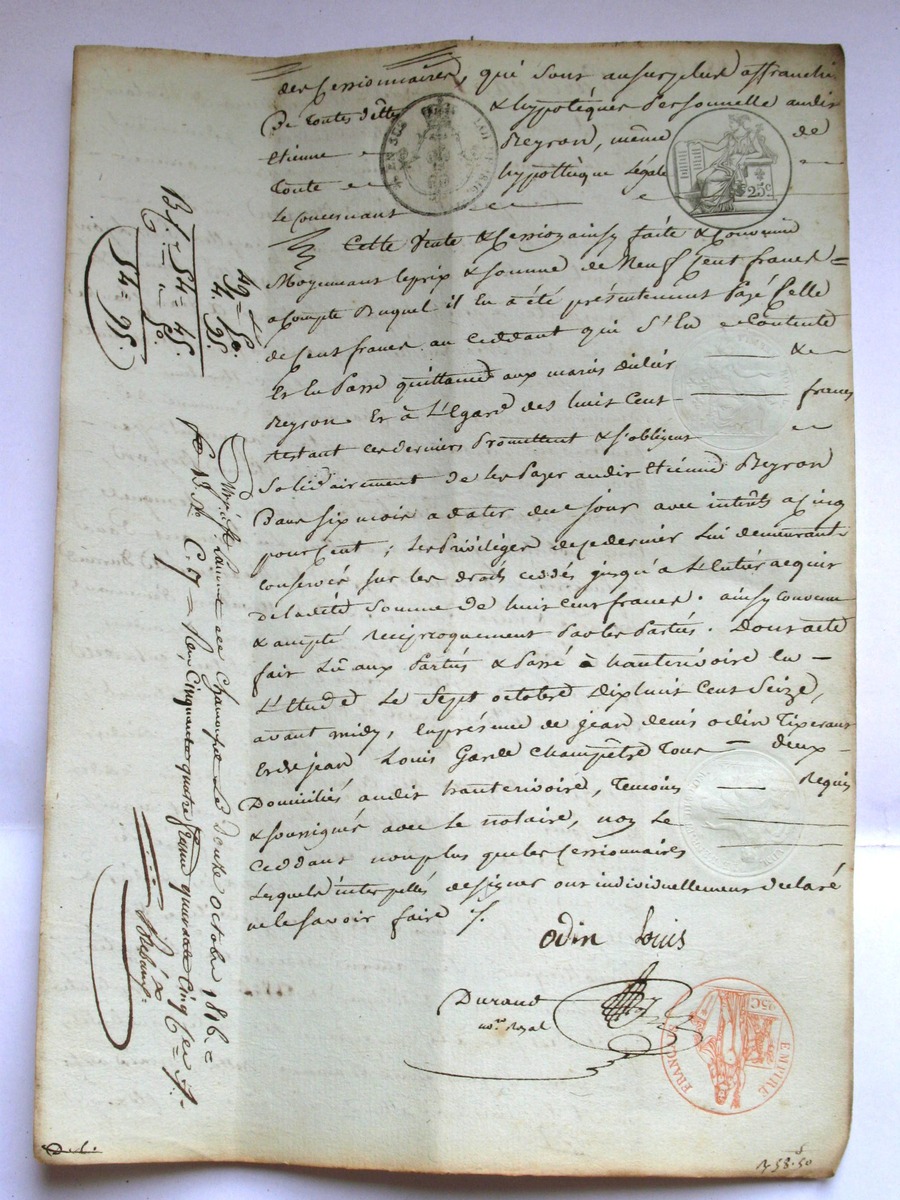 des Cessionnaires, qui sont ausurplus affranchi
De toutes dêttes & hypotèques Personnelle audit
Etienne Reyron, même de
toute hypotèque Légale
Le Concernant
Cette Vente & Cession ainsy faite & Convenue
Moyennant le prix & somme de Neuf Cent francs
acompte Duquel il en a été présentement Payé Celle
de Cent francs au Ceddant qui s'en Contente
Et en Passe quittance aux mariés &
Reyron Et à L'Egard des huit Cent francs
restant ces derniers Promettent & s'obligent
Solidairement de les Payer audit Etienne Reyron
Dans six mois a dater de ce Jour avec intérêts a Cinq
pour Cent; Les Privilèges de ce dernier Lui demeurant
conservés sur les droits ceddés jusqu'à L'Entier acquit
de ladite Somme de huit Cent francs. ainsy Convenu
& accepté réciprocquement Par les Parties. Dont acte
fait Lû aux Parties & Passé à hauterivoire En
L'Etude Le Sept octobre Dix huit Cent Seize,
avant midy, En présence de jean denis odin Tixerant
Et de jean Louis Garde Champêtre Tous deux
Domiciliés audit hauterivoire, Temoins Requis
& soussignés avec Le notaire, non Le
Ceddant non plus que les Cessionnaires
Lesquels interpellés de signer ont individuellement declaré
ne le savoir faire
odin Louis
Durand
no.re Royal
EMPIRE FRANÇ
35C
25c
49 = 50.
4. 95.
54 = 45.
50
54 = 95.
St Laurent de Chamousset Le Douze Octobre 1816.
Reçu Cinquante quatre francs quarante Cinq Cen
58.50